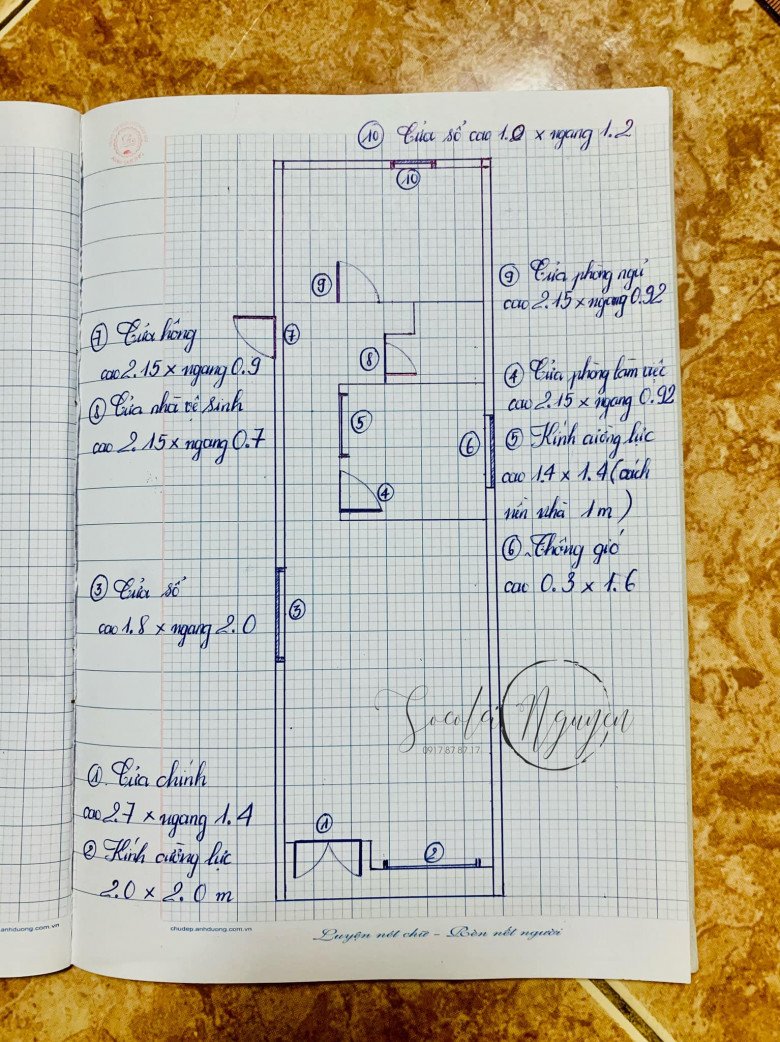 ⑩ Cửa sổ cao 1.0 x ngang 1.2
⑩
⑨
⑨ Cửa phòng ngủ
cao 2.15 x ngang 0.92
⑦
⑦ Cửa hông
cao 2.15 x ngang 0.9
⑧
⑧ Cửa nhà vệ sinh
cao 2.15 x ngang 0.7
④ Cửa phòng làm việc
cao 2.15 x ngang 0.92
⑤
⑥
⑤ Kính cường lực
cao 1.4 x 1.4 (cách
nền nhà 1m)
④
⑥ Thông gió
cao 0.3 x 1.6
③ Cửa sổ
cao 1.8 x ngang 2.0
③
Socola Nguyen
0917.87.87.17
① Cửa chính
cao 2.7 x ngang 1.4
①
② Kính cường lực
2.0 x 2.0 m
②
anhduong.com.vn
chudep.anhduong.com.vn
Luyện nét chữ - Rèn nết người